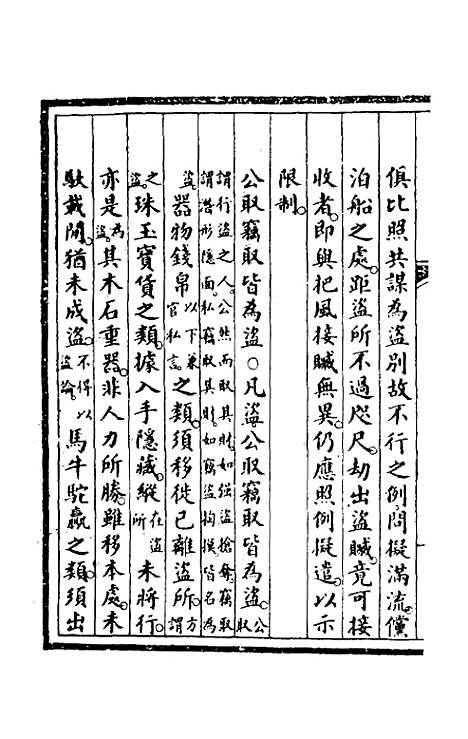 俱比照共謀為盜別故不行之例問擬滿流。儻
泊船之處。距盜所不過咫尺。刧出盜贓。竟可接
收者。即與把風接贓無異。仍應照例擬遣。以示
限制。
公取竊取皆為盜○凡盜。公取竊取皆為盜。公取
謂行盜之人。公然而取其財。如强盜搶奪。竊取
謂潛形隱面。私竊取其財。如竊盜掏摸。皆名為
盜。器物錢帛以下兼官私言。之類。須移徙已離盜所。方謂
之盜。珠玉寶貨之類。據入手隱藏。縱在盜所未將行。
亦是為盜。其木石重器。非人力所勝。雖移本處。未
馱載閒。猶未成盜。不得以盜論。馬牛駝臝之類。須出